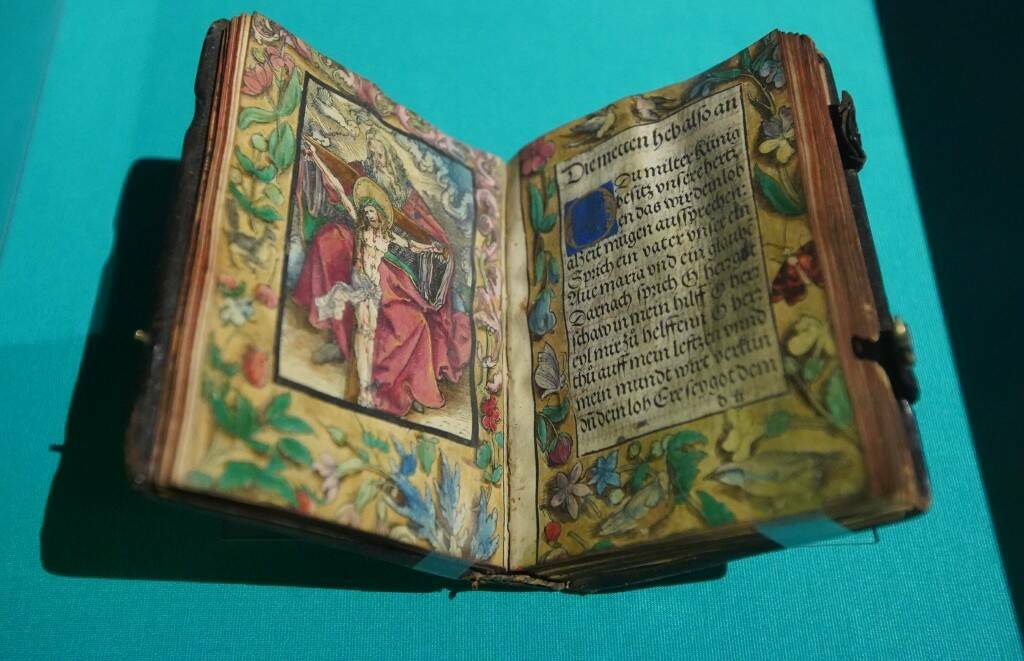 Die metten heb also an
Du milter künig
besitz vnsere hertz
en das wir dein lob
alzeit mügen aussprechen:
Sprich ein vater vnser ein
Aue maria vnd ein glaube
Darnach sprich O herr got
schaw in mein hilff O herr
eyl mir zů helffenn O herr
thů auff mein lefftzen vnnd
mein mundt wirt verkün
dñ dein lob Ere sey got dem